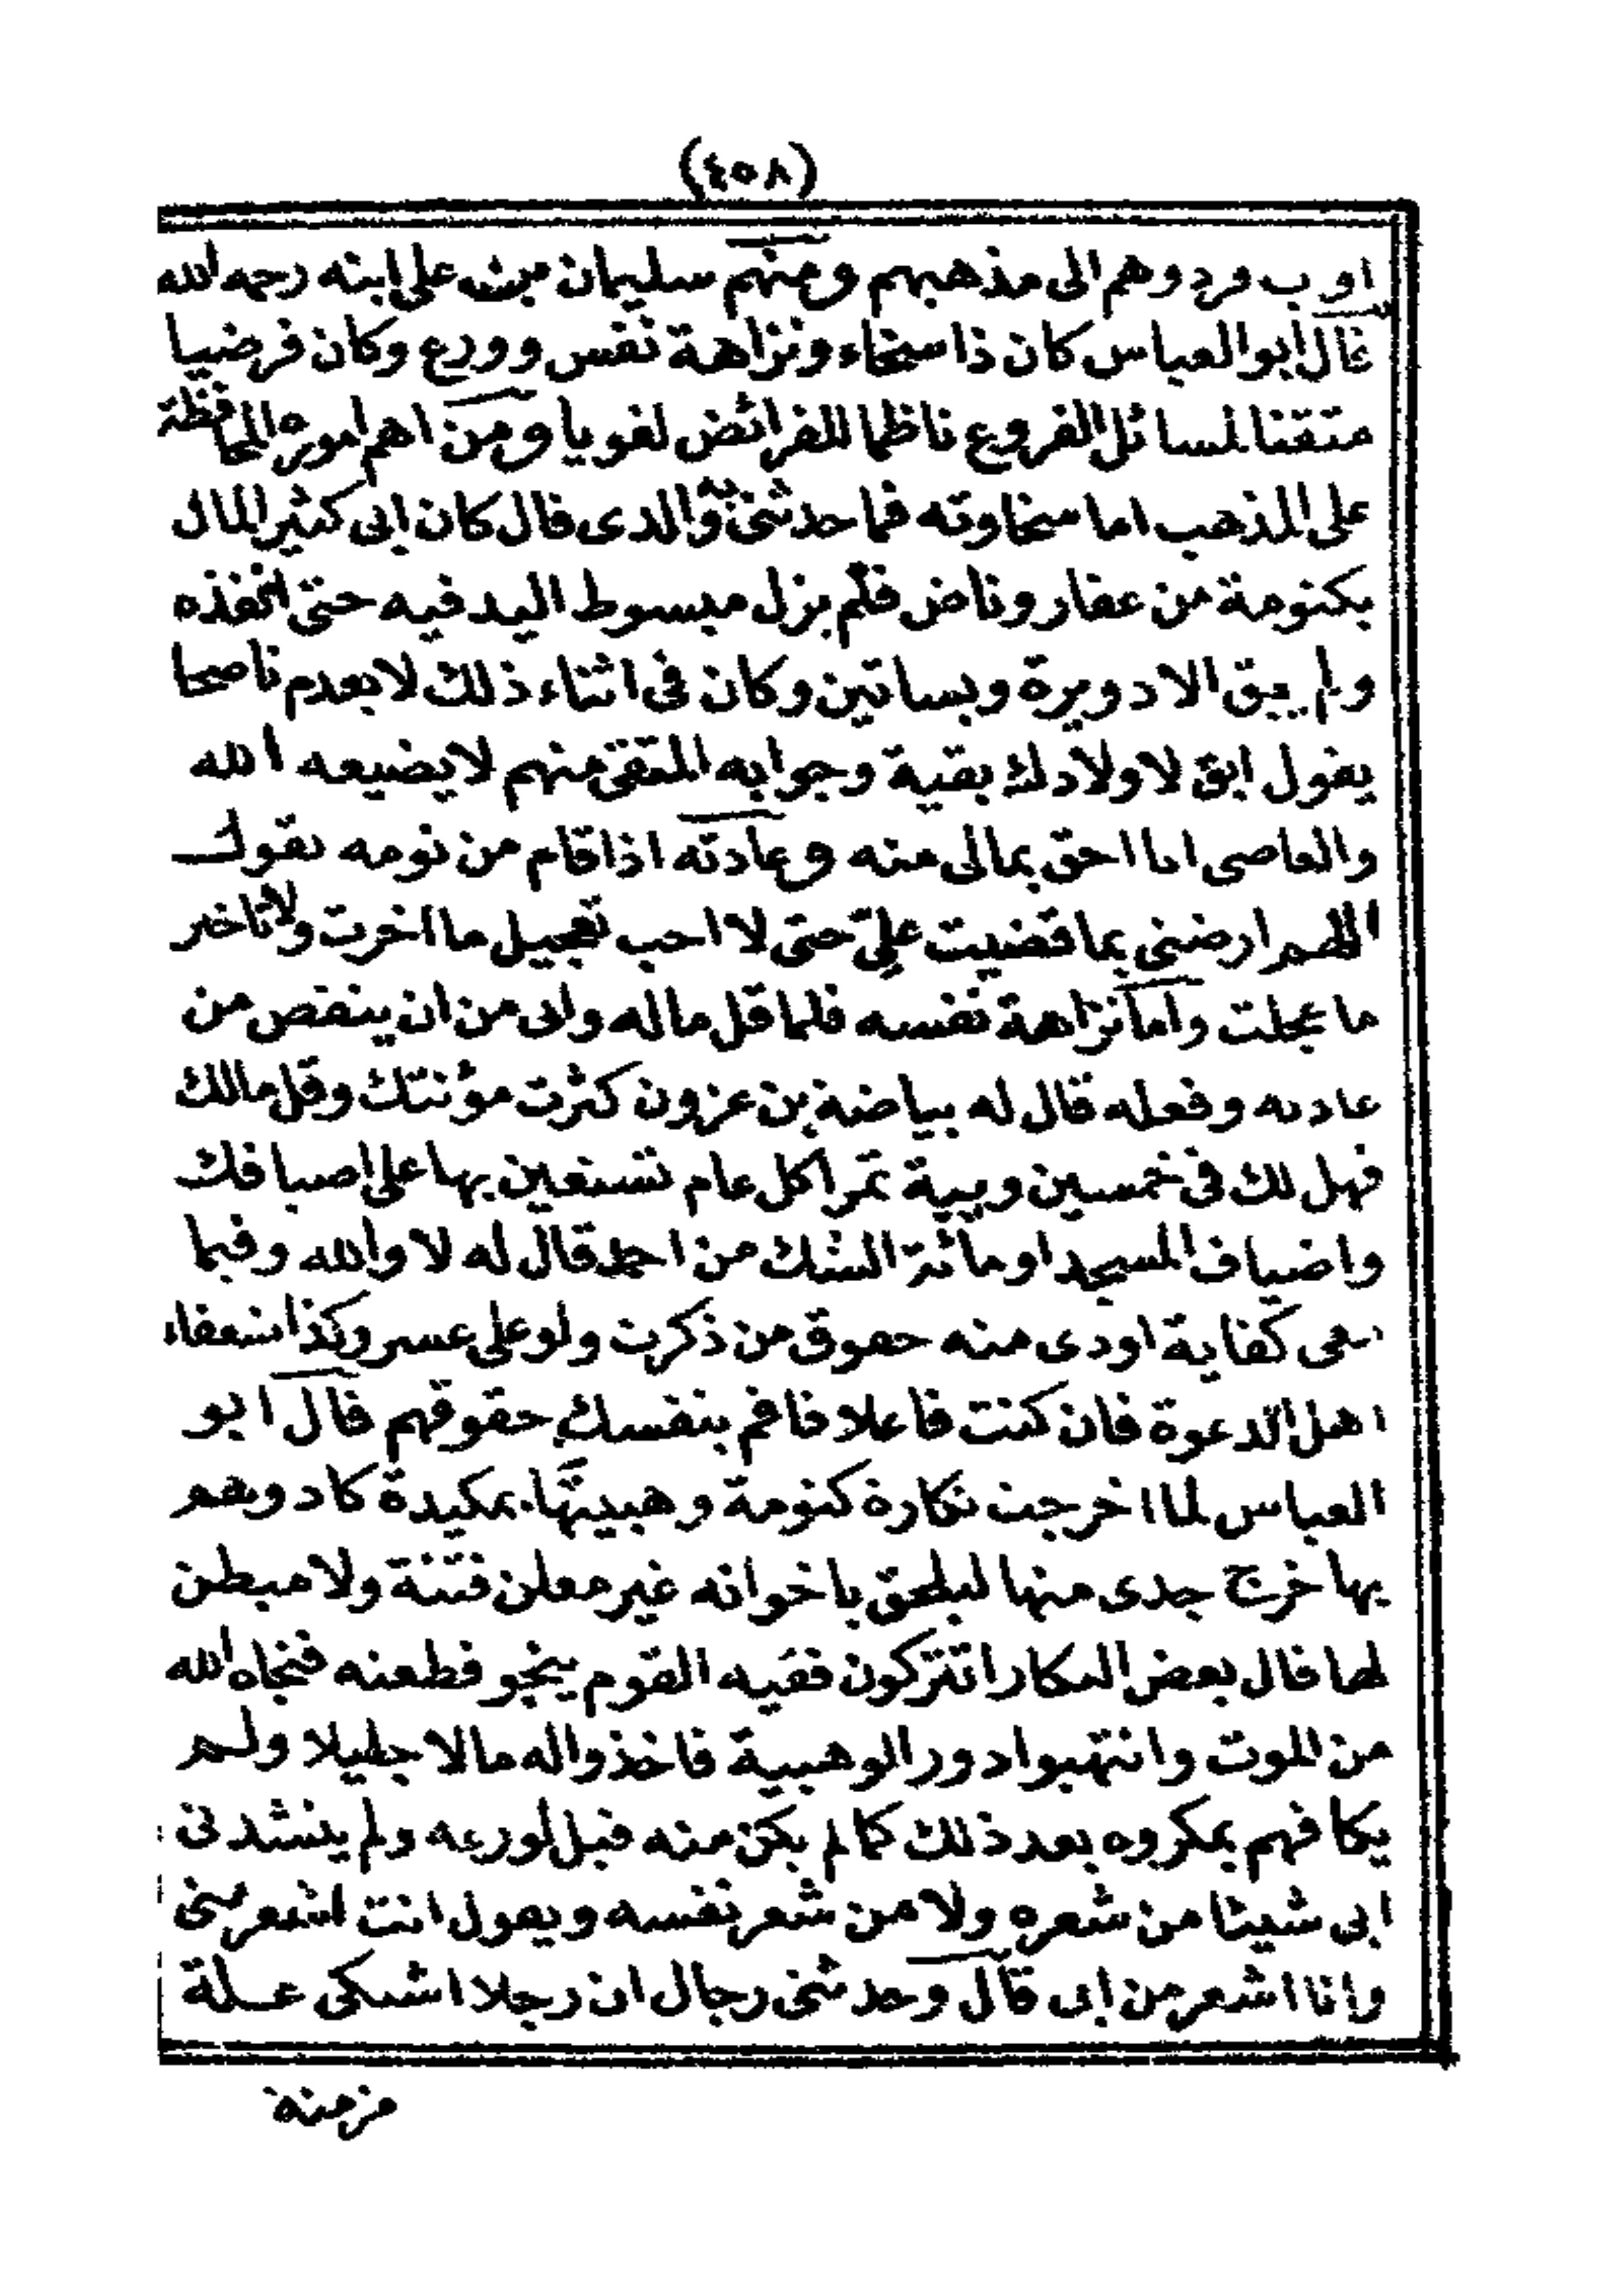 (٤٥٨)
اوب وردوهم الى مذهبهم ومنهم سليمان بن على ابنه رحمه الله
قال ابو العباس كان ذا سخاء ونزاهة نفس وورع وكان فرضيا
متقنا لمسائل الفروع ناظما للفرائض لغويا ومن اهم اموره المحافظة
على المذهب اما سخاوته فما حدثنى به والدى قال كان ابى كثير المال
بكنومة من عقار وناض فلم يزل مبسوط اليد فيه حتى انفذه
ولم يبق الا دويرة وبساتين وكان فى اثناء ذلك لا يعدم ناصحا
يقول ابق لاولادك بقية وجوابه المتقى منهم لا يضيعه الله
والعاصى انا احق بمالى منه وعادته اذا قام من نومه يقول
اللهم ارضنى بما قضيت علىّ حتى لا احب تعجيل ما اخرت ولا تاخير
ما عجلت واما نزاهة نفسه فلما قل ماله وابى من ان ينقص من
عادته وفعله قال له بياضة بن عزون كثرت مؤنتك وقل مالك
فهل لك فى خمسين ويبة تمرا كل عام تستعين بها على اضيافك
واضياف المسجد او مائة الشك من احمد قال له لا والله وفيما
معى كفاية اودى منه حقوق من ذكرت ولو على عسر وكذا ضعفاء
اهل الدعوة فان كنت فاعلا فاقم بنفسك حقوقهم قال ابو
العباس لما اخرجت نكارة كنومة وهبيتها بمكيدة كادوهم
بها خرج جدى منها ليلحق باخوانه غير معلن فتنة ولا مبطن
لها قال بعض النكار اتتركون فقيه القوم ينجو فطعنه فنجاه الله
من الموت وانتهبوا دور الوهبية فاخذوا له مالا جليلا ولم
يكافهم بمكروه بعد ذلك كما لم يكن منه قبل لورعه ولم ينشدنى
ابى شيئا من شعره ولا من شعر نفسه ويقول انت اشعر منى
وانا اشعر من ابى قال وحدثنى رجال ان رجلا اشتكى علة
مزمنة